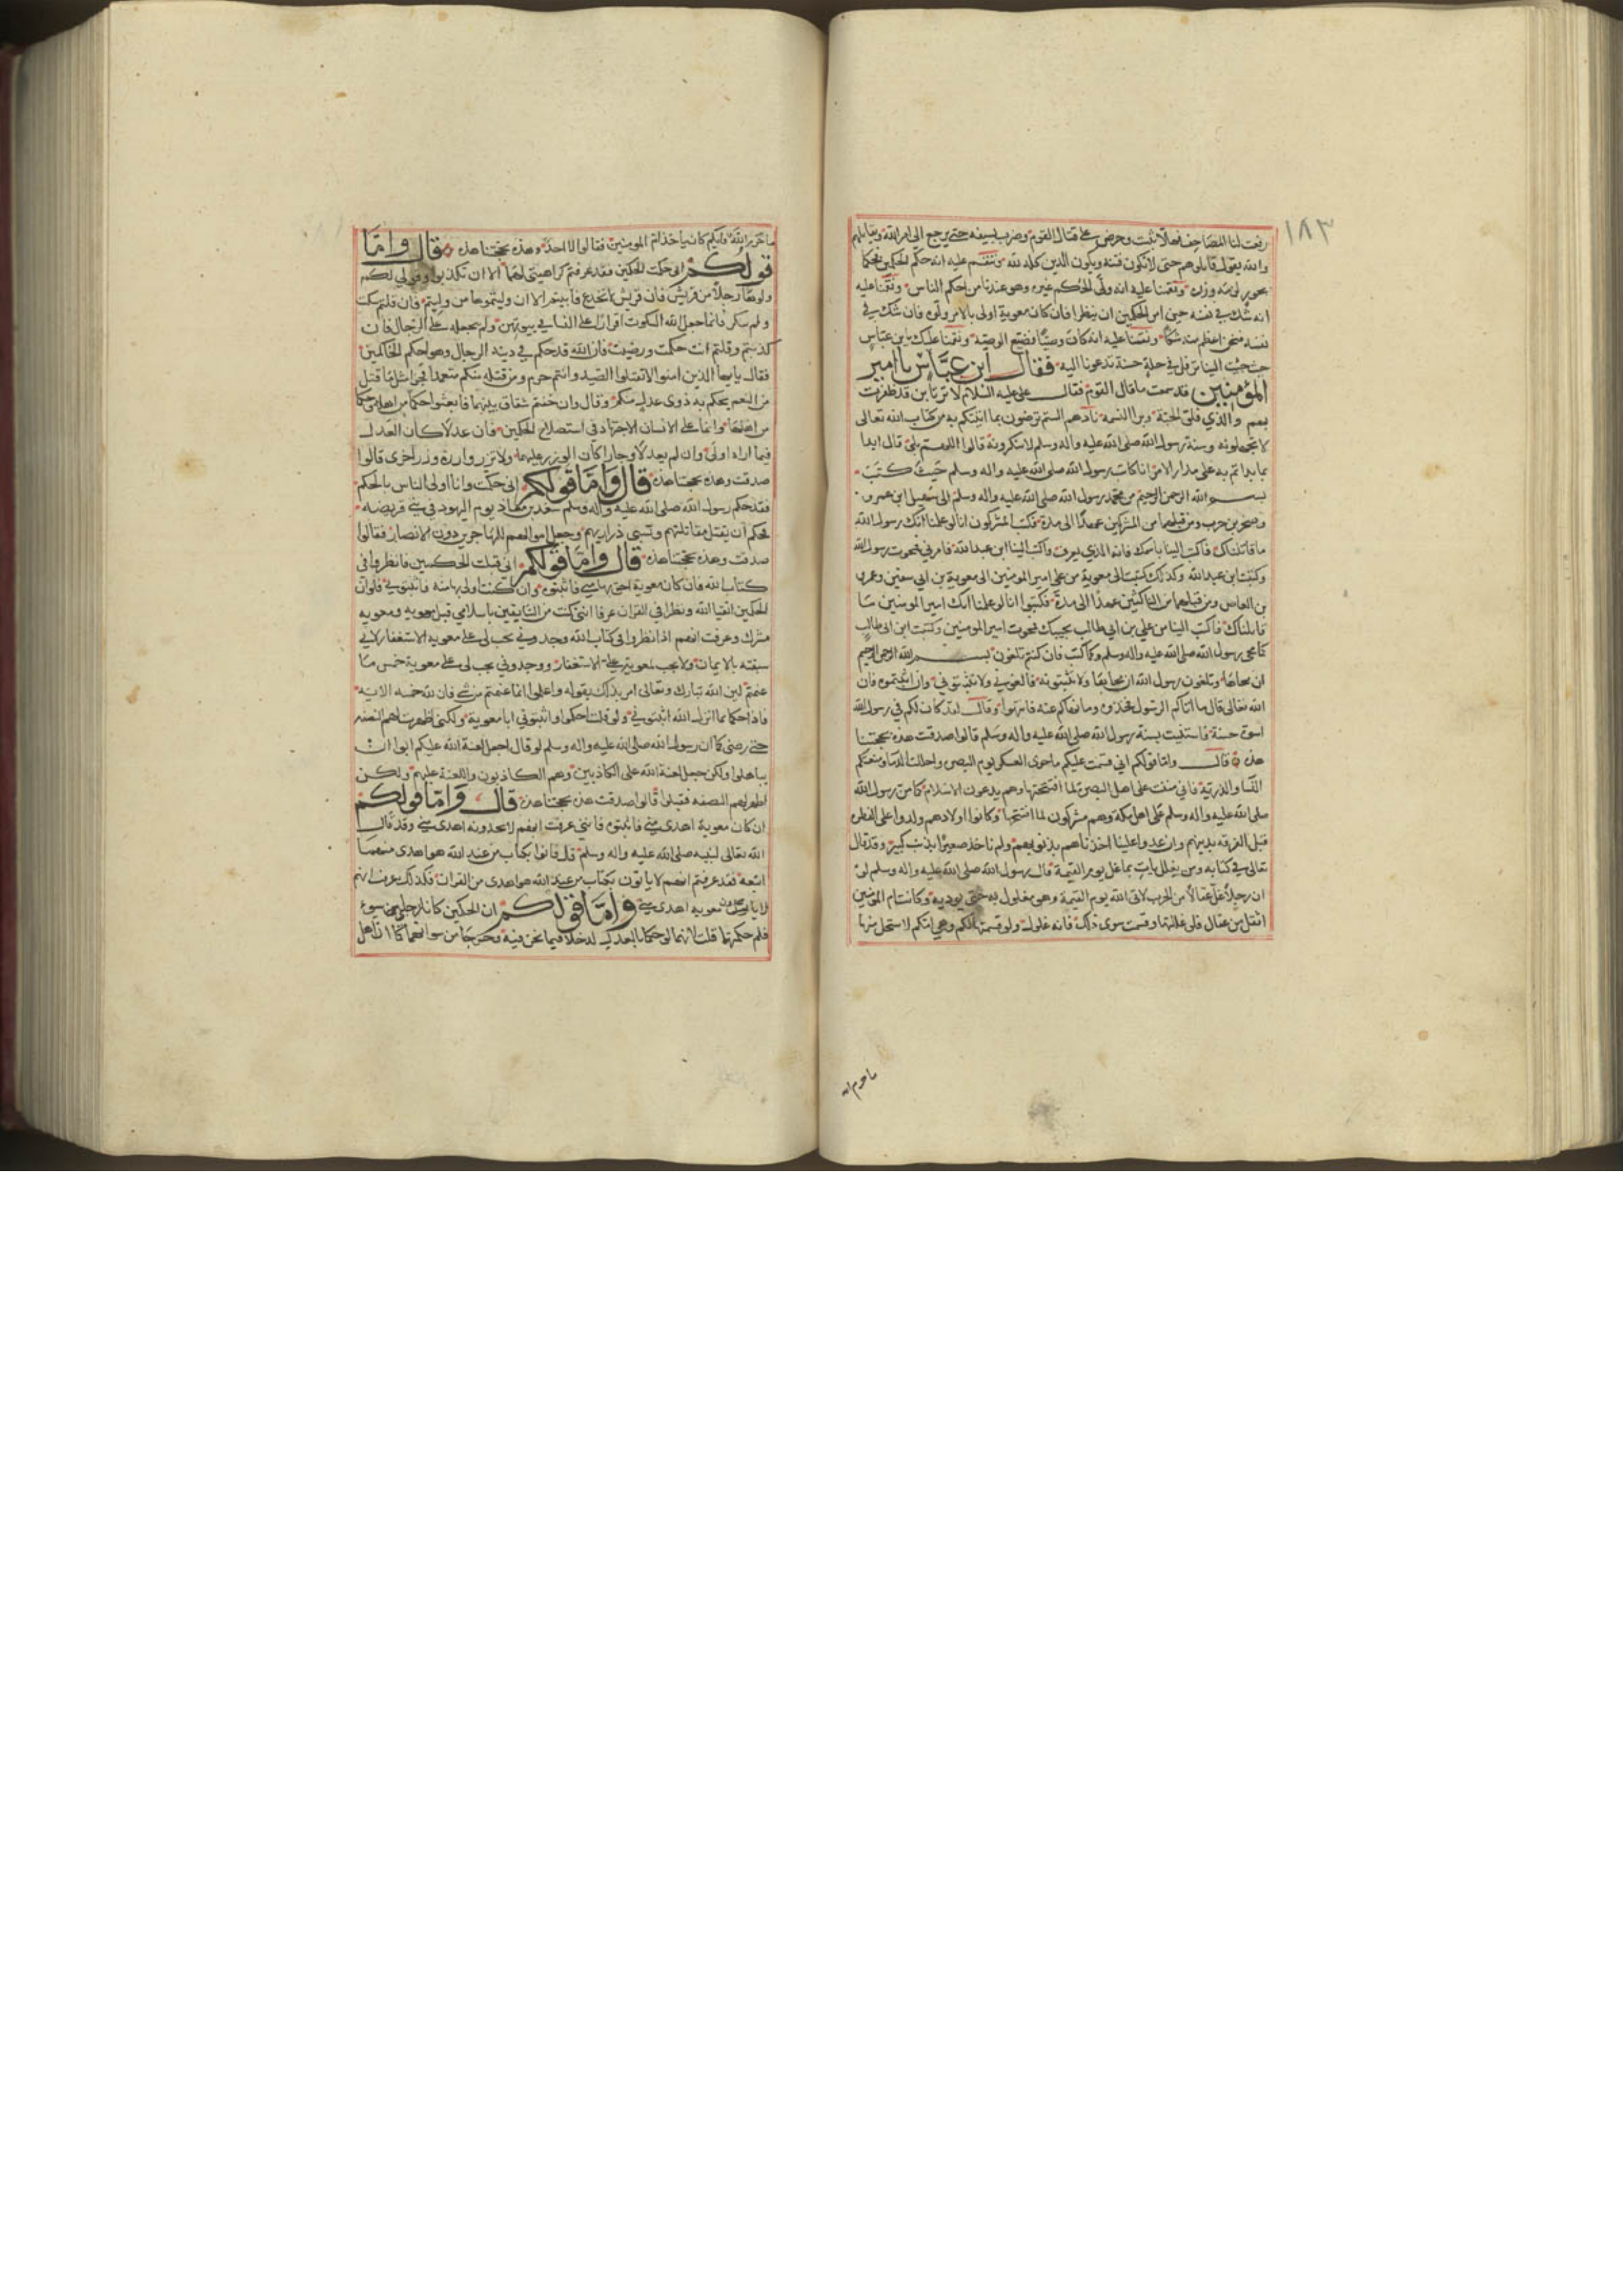 ١٨٣
رفعت لنا المصاحف فهلا ثبت وحرض على قتال القوم وضرب بسيفه حتى يرجع الى امر الله ويقاتلهم
والله يقول قاتلوهم حتى لا تكون فتنة ويكون الدين كله لله ونتقم عليه انه حكم الحكمين فحكما
بجور وزره ونقمنا عليه انه ولى الحكم غيره وهو عندنا من احكم الناس ونقمنا عليه
انه شك في نفسه حين امر الحكمين ان ينظرا فان كان معوية اولى بالامر ولوه فان شك في
نفسه فنحن اعظم منه شكا ونقمنا عليه انه كان وصيا فضيع الوصية ونقمنا عليك يابن عباس
حيث جيت الينا ترفل في حلة حسنة تدعونا اليه فقال ابن عباس يا امير
المؤمنين قد سمعت ما قال القوم فقال على عليه السلام لا ترتابن قد ظفرت
بهم والذي فلق الحبة وبرا النسمة نادهم الستم ترضون بما انبئكم به من كتاب الله تعالى
لا تجهلونه وسنة رسول الله صلى الله عليه واله وسلم لا تنكرونه قالوا اللهم بلى قال ابدا
بما بداتم به على مدار الامر انا كاتب رسول الله صلى الله عليه واله وسلم حيث كتب
بسم الله الرحمن الرحيم من محمد رسول الله صلى الله عليه واله وسلم الى سهيل ابن عمرو
وصخر بن حرب ومن قبلهما من المشركين عهدا الى مدة فكتب المشركون انا لو علمنا انك رسول الله
ما قاتلناك فاكتب الينا باسمك فانه الذي يعرف واكتب الينا ابن عبد الله فامرني فمحوت رسول الله
وكتبت ابن عبد الله وكذلك كتبت الى معوية من على امير المومنين الى معوية بن ابي سفين وعمرو
بن العاص ومن قبلهما من الناكثين عهدا الى مدة فكتبوا انا لو علمنا انك امير المومنين ما
قاتلناك فاكتب الينا من علي بن ابي طالب نجيبك فمحوت امير المومنين وكتبت ابن ابي طالب
كما محى رسول الله صلى الله عليه واله وسلم وكما كتب فان كنتم تلغون بسم الله الرحمن الرحيم
ان محاها وتلغون رسول الله ان محاها ولا تثبتونه فالغوني ولا تثبتوني وان اثبتموه فان
الله تعالى قال ما اتاكم الرسول فخذوه وما نهاكم عنه فانتهوا وقال لقد كان لكم في رسول الله
اسوة حسنة فاستننت بسنة رسول الله صلى الله عليه واله وسلم قالوا صدقت هذه بحجتنا
هذه قال واما قولكم اني قسمت عليكم ما حوى العسكر يوم البصرة واحللت الدماء ومنعتكم
النساء والذرية فاني مننت على اهل البصرة لما افتتحتها وهم يدعون الاسلام كما من رسول الله
صلى الله عليه واله وسلم على اهل مكة وهم مشركون لما افتتحها وكانوا اولادهم ولدوا على الفطرة
قبل الفرقة بدينهم وان عدوا علينا اخذناهم بذنوبهم ولم ناخذ صغيرا بذنب كبير وقد قال
تعالى في كتابه ومن يغلل يات بما غل يوم القيمة قال رسول الله صلى الله عليه واله وسلم لو
ان رجلا غل عقالا من الحرب لاقى الله يوم القيمة وهو مغلول به حتى يوديه وكانت ام المومنين
اثقل من عقال فلو غللتها وقسمت سوى ذلك فانه غلول ولو قسمتها لكم وهي امكم لاستحل منها
ما حرم الله
ما حرم الله فايكم كان ياخذ ام المومنين فقالوا لا احد وهذه بحجتنا هذه قال واما
قولكم انى حكمت الحكمين فقد عرفتم كراهيتى لهما الا ان تكذبوا وقولي لكم
ولوها رجلا من قريش فان قريش لا تخدع فابيتم الا ان وليتموها من وليتم فان قلتم سكت
ولم تنكر فانما جعل الله السكوت اقرارا على النسا في بيوتهن ولم يجعله على الرجال فان
كذبتم وقلتم انت حكمت ورضيت فان الله قد حكم في دينه الرجال وهو احكم الحاكمين
فقال يايها الذين امنوا لا تقتلوا الصيد وانتم حرم ومن قتله منكم متعمدا فجزا مثل ما قتل
من النعم يحكم به ذوى عدل منكم وقال وان خفتم شقاق بينهما فابعثوا حكما من اهله وحكما
من اهلها وانما على الانسان الاجتهاد في استصلاح الحكمين فان عدلا كان العدل
فيما اراه اولى وان لم يعدلا وجارا كان الوزر عليهما ولا تزر وازرة وزر اخرى قالوا
صدقت وهذه بحجتنا هذه قال واما قولكم انى حكمت وانا اولى الناس بالحكم
فقد حكم رسول الله صلى الله عليه واله وسلم سعد بن معاذ يوم اليهود في بني قريضه
فحكم ان يقتل مقاتلتهم وتسبى ذراريهم وجعل اموالهم للمهاجرين دون الانصار فقالوا
صدقت وهذه بحجتنا هذه قال واما قولكم انى قبلت الحكمين فانظروا في
كتاب الله فان كان معوية احق بها منى فاثبتوه وان كنت اولى بها منه فاثبتوني فلو ان
الحكمين اتقيا الله ونظرا في القران عرفا انني كنت من السابقين باسلامي قبل معويه ومعويه
مشرك وعرفت انهم اذا نظروا في كتاب الله وجدوني يجب لى على معويه الاستغفار لاني
سبقته بالايمان ولا يجب لمعوية على الاستغفار ووجدوني يجب لى على معوية خمس ما
غنمتم لان الله تبارك وتعالى امر بذلك بقوله واعلموا انما غنمتم من شي فان لله خمسه الاية
فاذا حكما بما انزل الله اثبتوني ولو قلت احكموا واثبتوني ابا معوية ولكنى اظهرت لهم النصفه
حتى رضى كما ان رسول الله صلى الله عليه واله وسلم لو قال اجعل لعنة الله عليكم ابوا ان
يباهلوا ولكن جعل لعنة الله على الكاذبين وهم الكاذبون واللعنة عليهم ولكن
اظهر لهم النصفه فقبلوا قالوا صدقت هذه بحجتنا هذه قال واما قولكم
ان كان معوية اهدى منى فاثبتوه فاننى عرفت انهم لا يجدونه اهدى منى وقد قال
الله تعالى لنبيه صلى الله عليه واله وسلم قل فاتوا بكتاب من عند الله هو اهدى منهما
اتبعه فقد عرفتم انهم لا ياتون بكتاب من عند الله هو اهدى من القران فكذلك عرفت انهم
لا يجدون معويه اهدى منى واما قولكم ان الحكمين كانا رجلين سوء
فلم حكمتهما قلت انهما لو حكما بالعدل لدخلا فيما نحن فيه وخرجا من سوائهما كما ان اهل